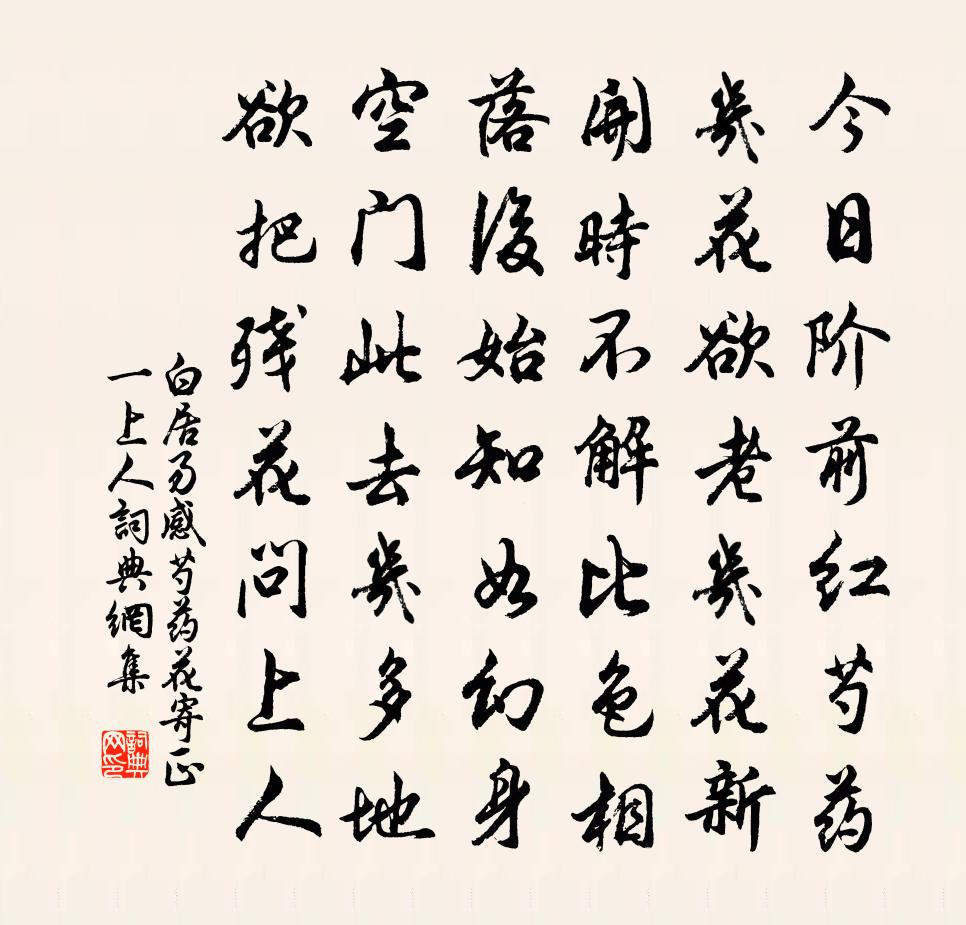 今日阶前红芍药
幾花欲老幾花新
開時不解比色相
落後始知如幻身
空门此去幾多地
欲把残花问上人
白居易感芍药花寄正
一上人詞典網集
詞典
网印